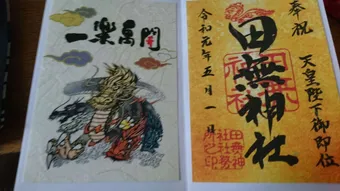 一樂萬
奉祝
天皇陛下御即位
田無神社
令和元年五月一日
田無神
社社務
所之印